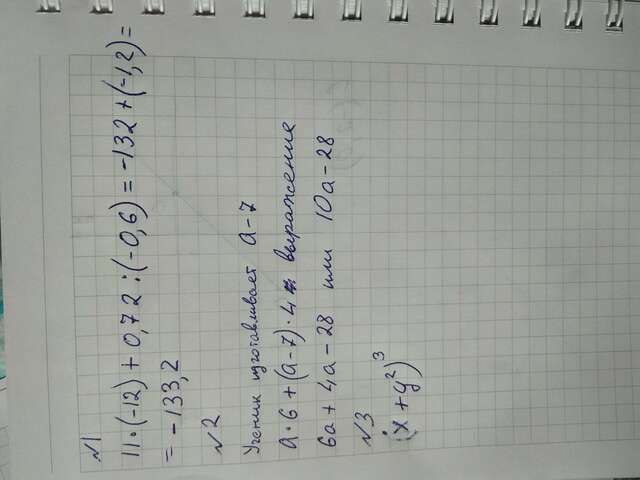 №1
11·(-12)+0,72:(-0,6)=-132+(-1,2)=
=-133,2
№2
Ученик изготавливает a-7
a·6+(a-7)·4 выражение
6a+4a-28 или 10a-28
№3
(x+y²)³